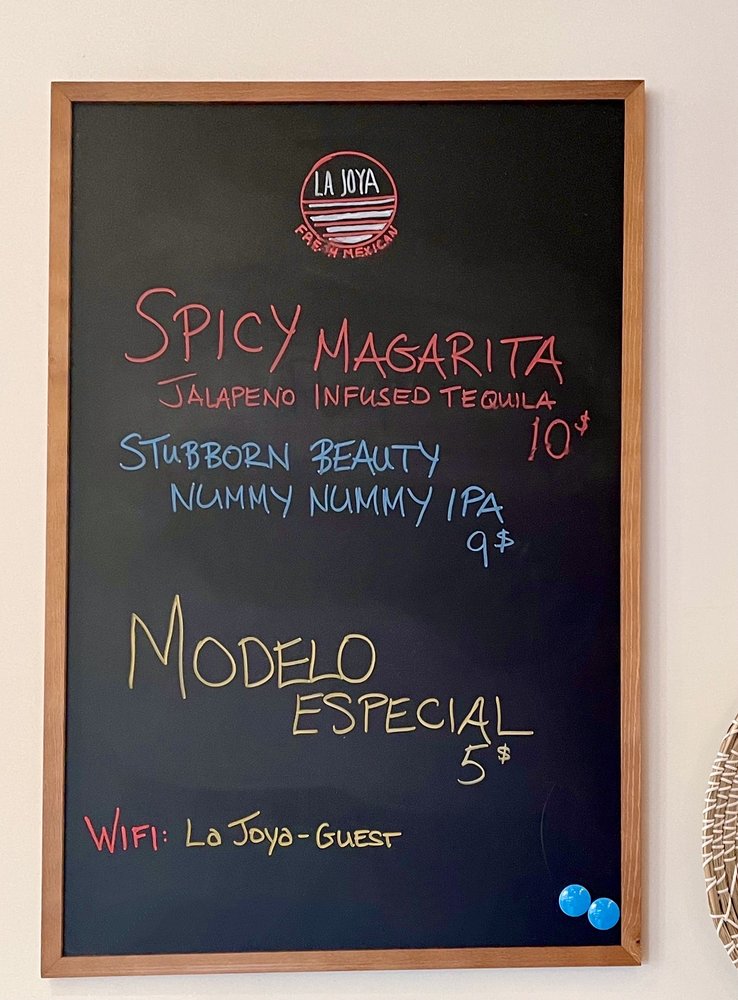 LA JOYA
FRESH MEXICAN
SPICY MAGARITA
JALAPENO INFUSED TEQUILA
10$
STUBBORN BEAUTY
NUMMY NUMMY IPA
9$
MODELO
ESPECIAL
5$
WIFI: La Joya-GUEST